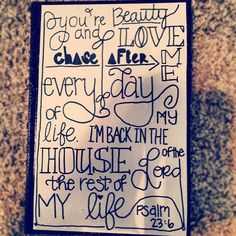 you're Beauty
and LOVE
chase After ME
every day
of MY
life. I'M BACK IN THE
HOUSE of the Lord
the rest of
MY life
Psalm
23:6